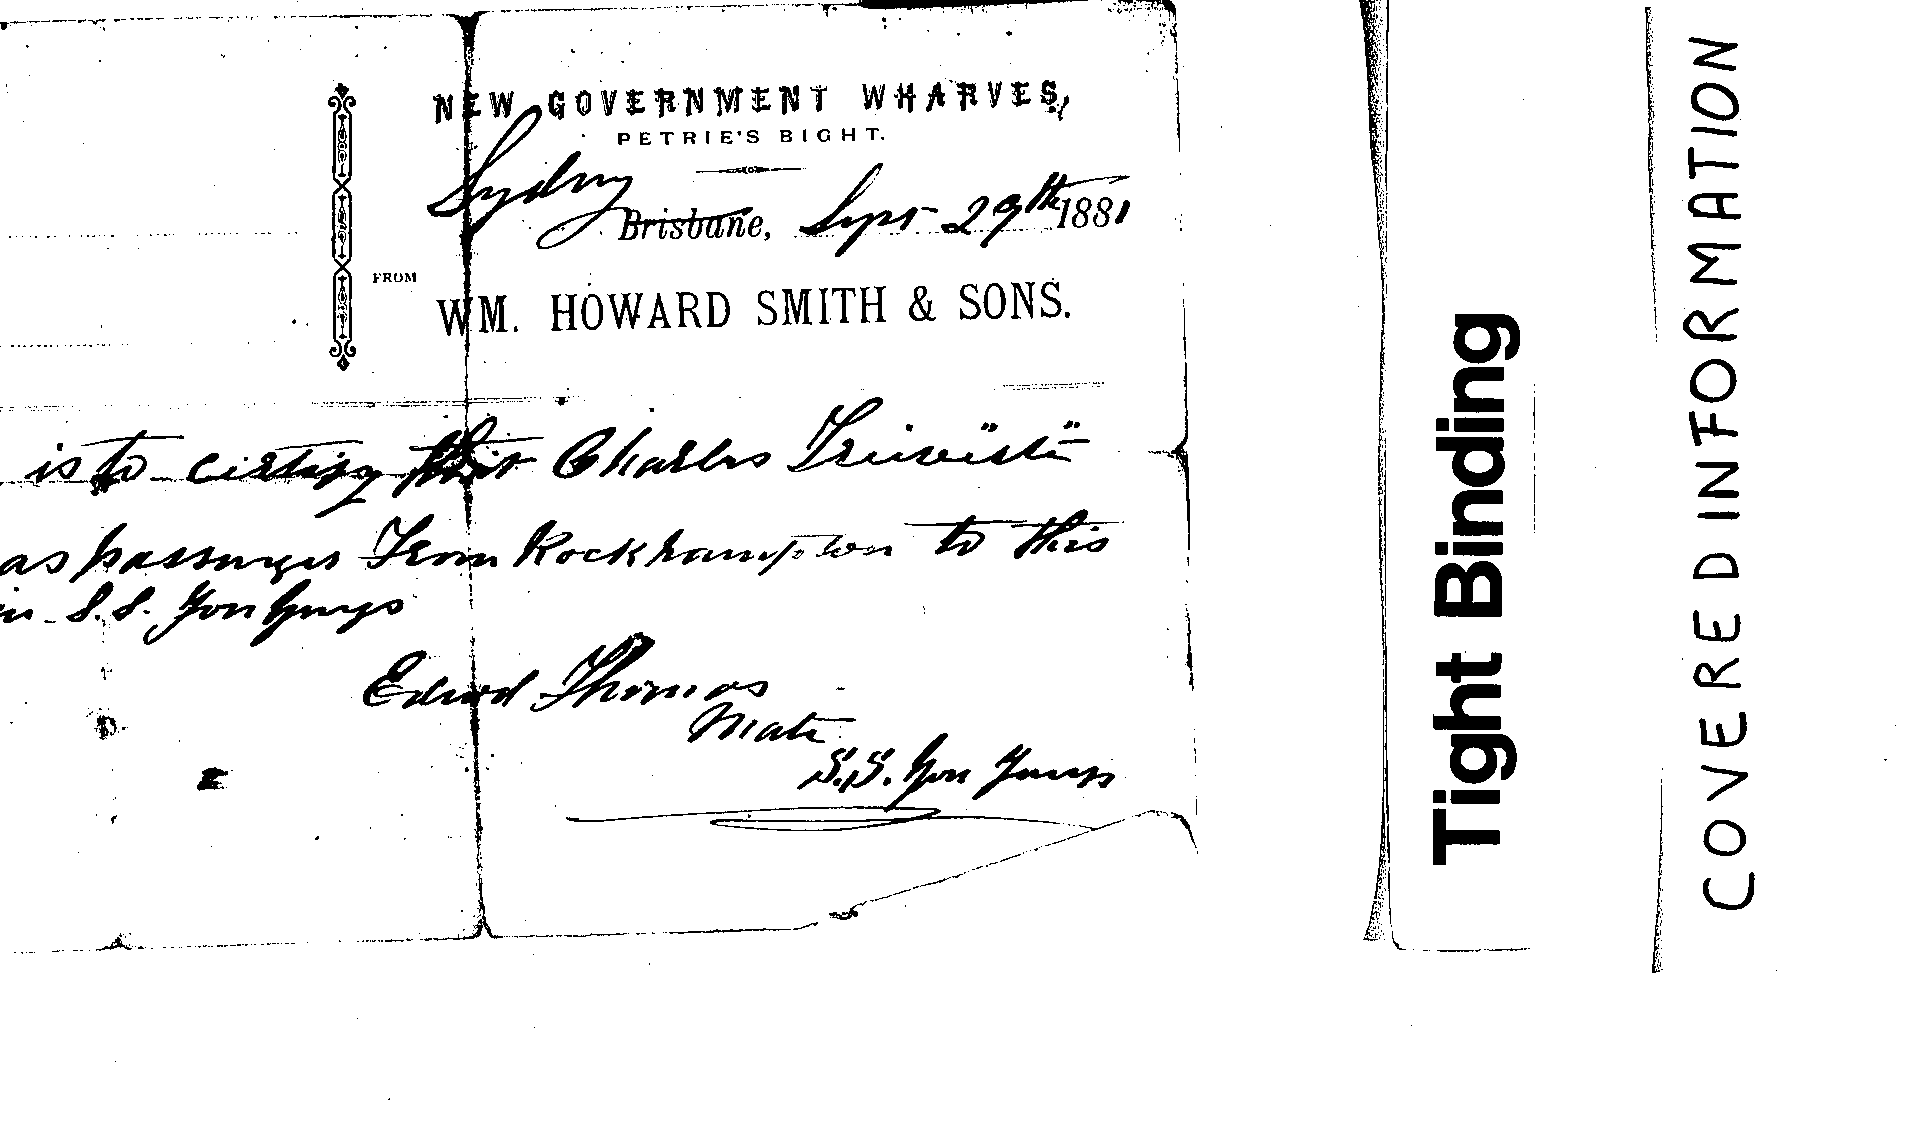 NEW GOVERNMENT WHARVES,
PETRIE'S BIGHT.
Sydny
Brisbane, Sept 29th 1881
FROM
WM. HOWARD SMITH & SONS.
is to certify that Charles
as passenger From Rockhampton to this
in S.S. You Yangs
Edwd Thomas
Mate
S.S. You Yangs
Tight Binding
COVERED INFORMATION